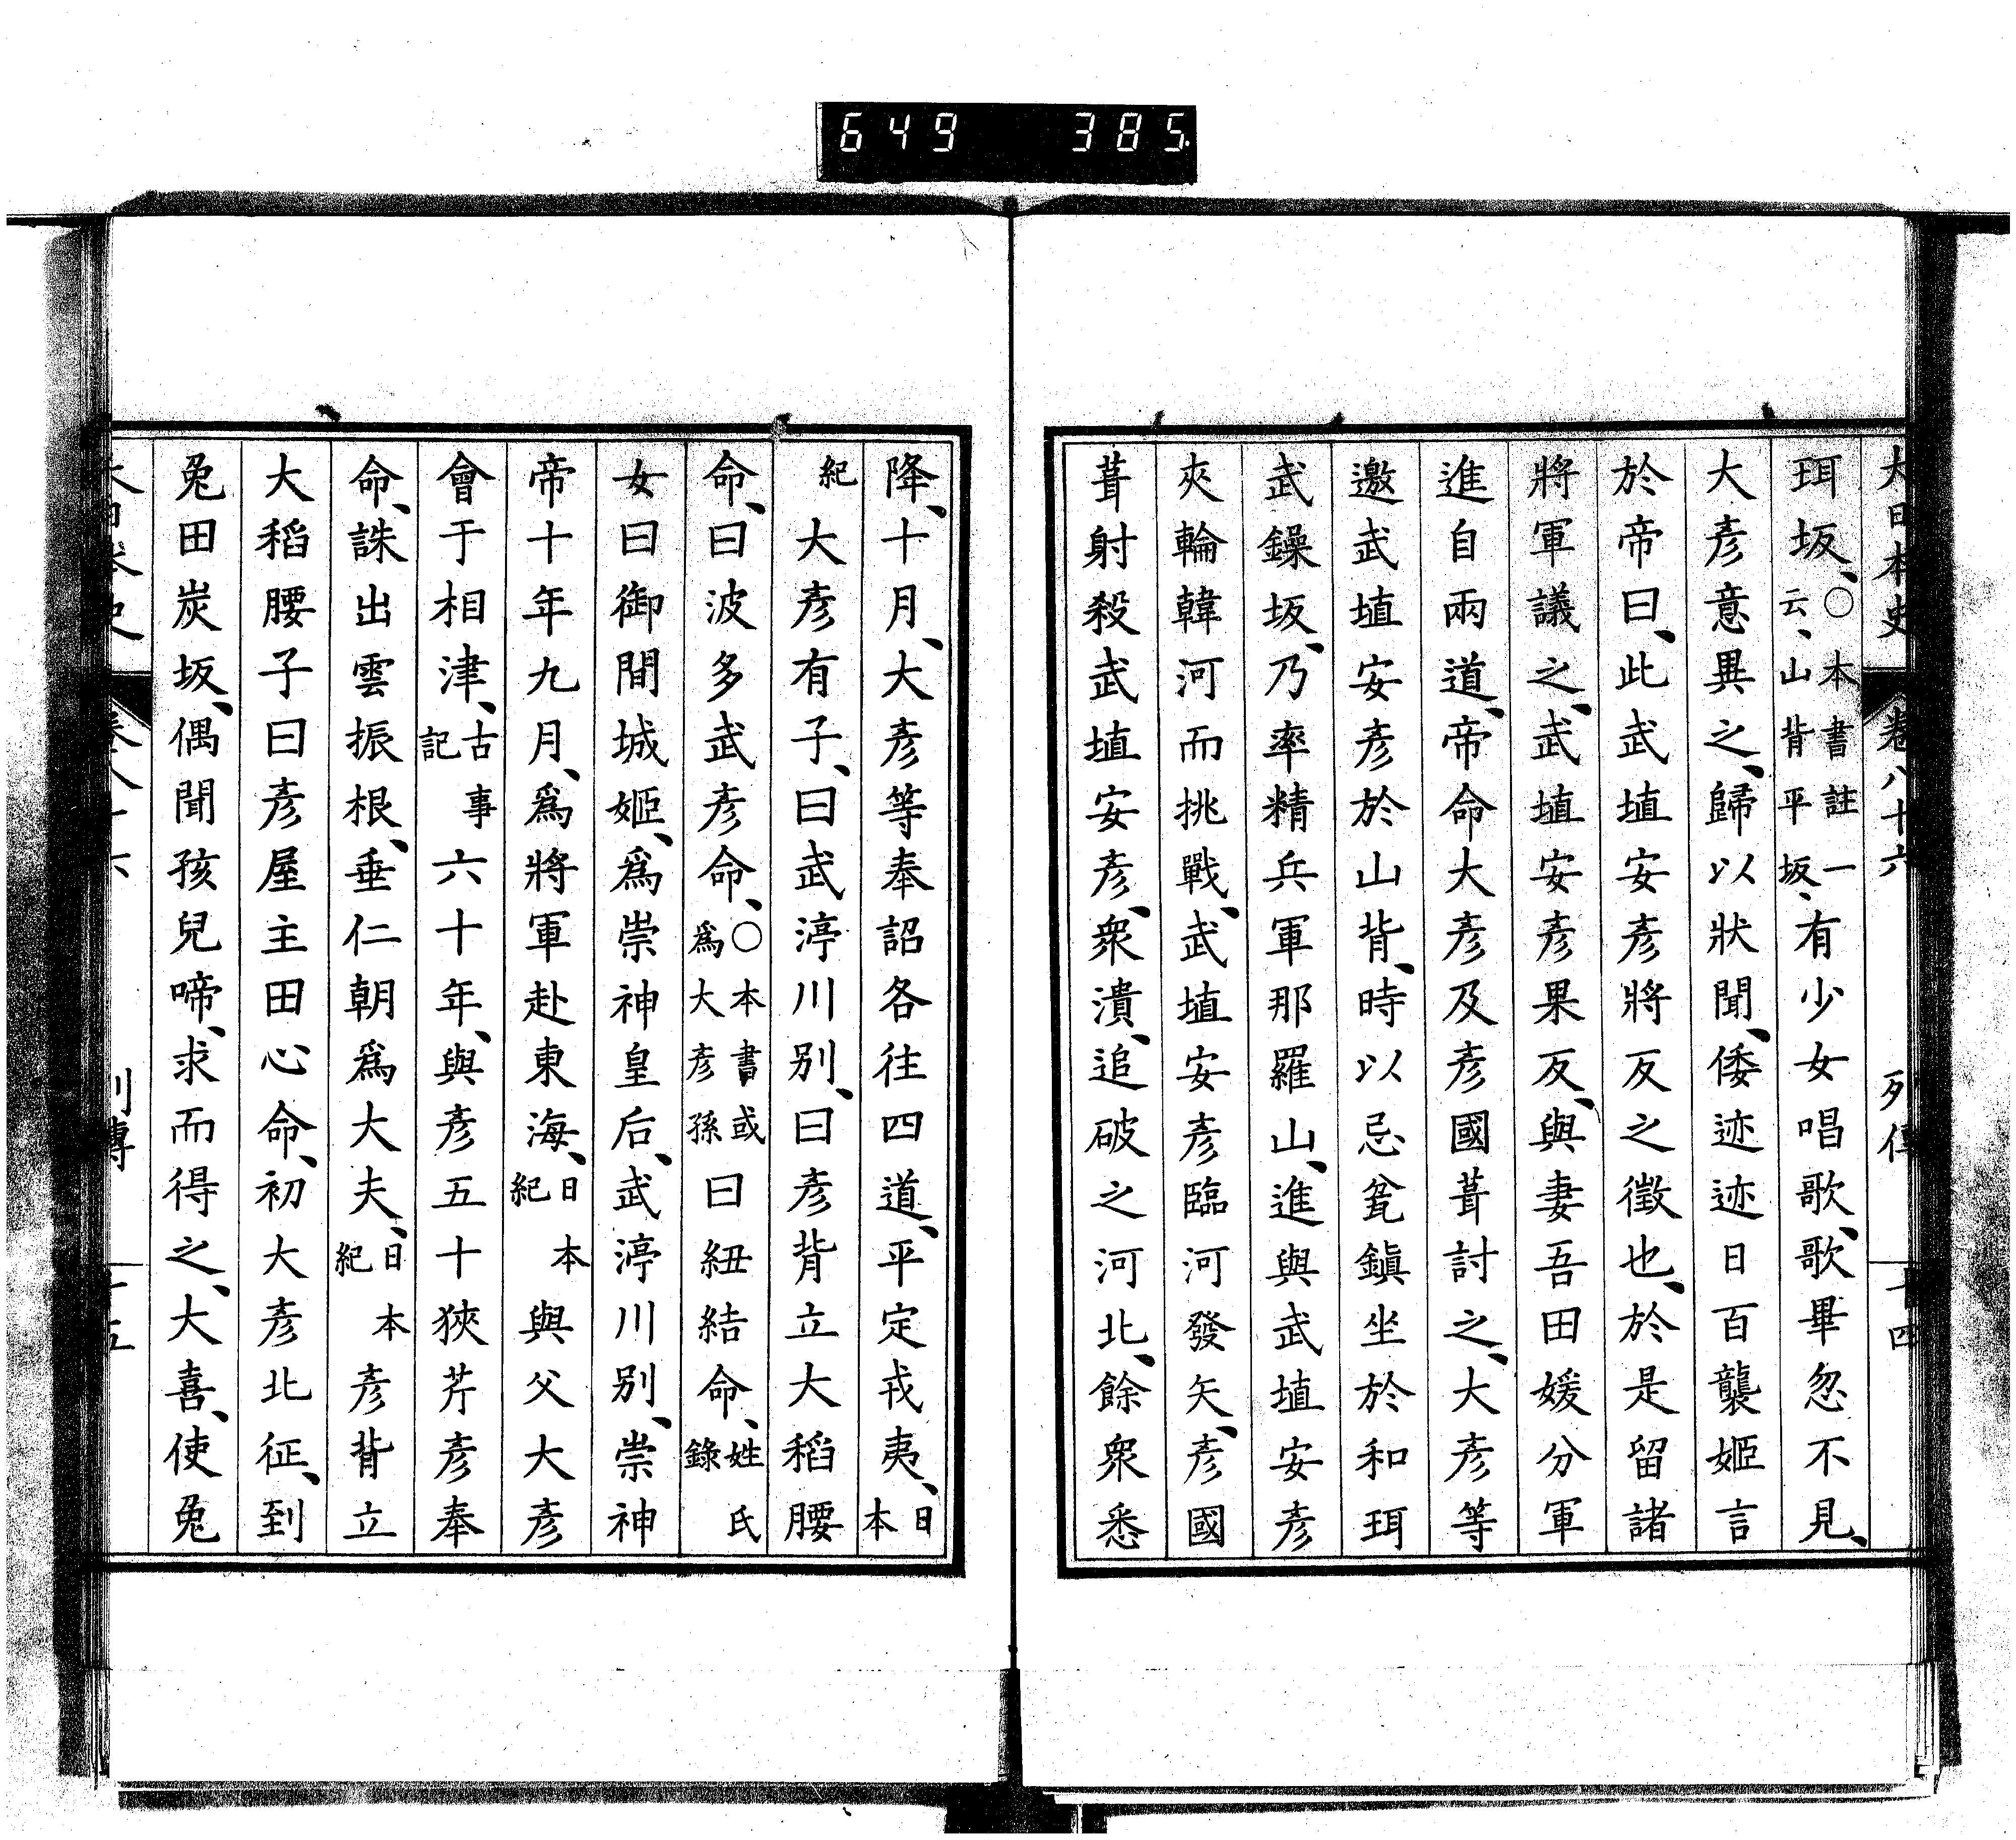 649 385
大日本史 卷八十六 列傳 十四
珥坂、〇本書註一云、山背平坂、有少女唱歌、歌畢忽不見、
大彥意異之、歸以狀聞、倭迹迹日百襲姬言
於帝曰、此武埴安彥將反之徵也、於是留諸
將軍議之、武埴安彥果反、與妻吾田媛分軍
進自兩道、帝命大彥及彥國葺討之、大彥等
邀武埴安彥於山背、時以忌瓮鎭坐於和珥
武鐰坂、乃率精兵軍那羅山、進與武埴安彥
夾輪韓河而挑戰、武埴安彥臨河發矢、彥國
葺射殺武埴安彥、衆潰、追破之河北、餘衆悉
降、十月、大彥等奉詔各往四道、平定戎夷、日本
紀大彥有子、曰武渟川別、曰彥背立大稻腰
命、曰波多武彥命、〇本書或爲大彥孫曰紐結命、姓氏錄
女曰御間城姬、爲崇神皇后、武渟川別、崇神
帝十年九月、爲將軍赴東海、日本紀與父大彥
會于相津、古事記六十年、與彥五十狹芹彥奉
命、誅出雲振根、垂仁朝爲大夫、日本紀彥背立
大稻腰子曰彥屋主田心命、初大彥北征、到
兔田炭坂、偶聞孩兒啼、求而得之、大喜、使兔